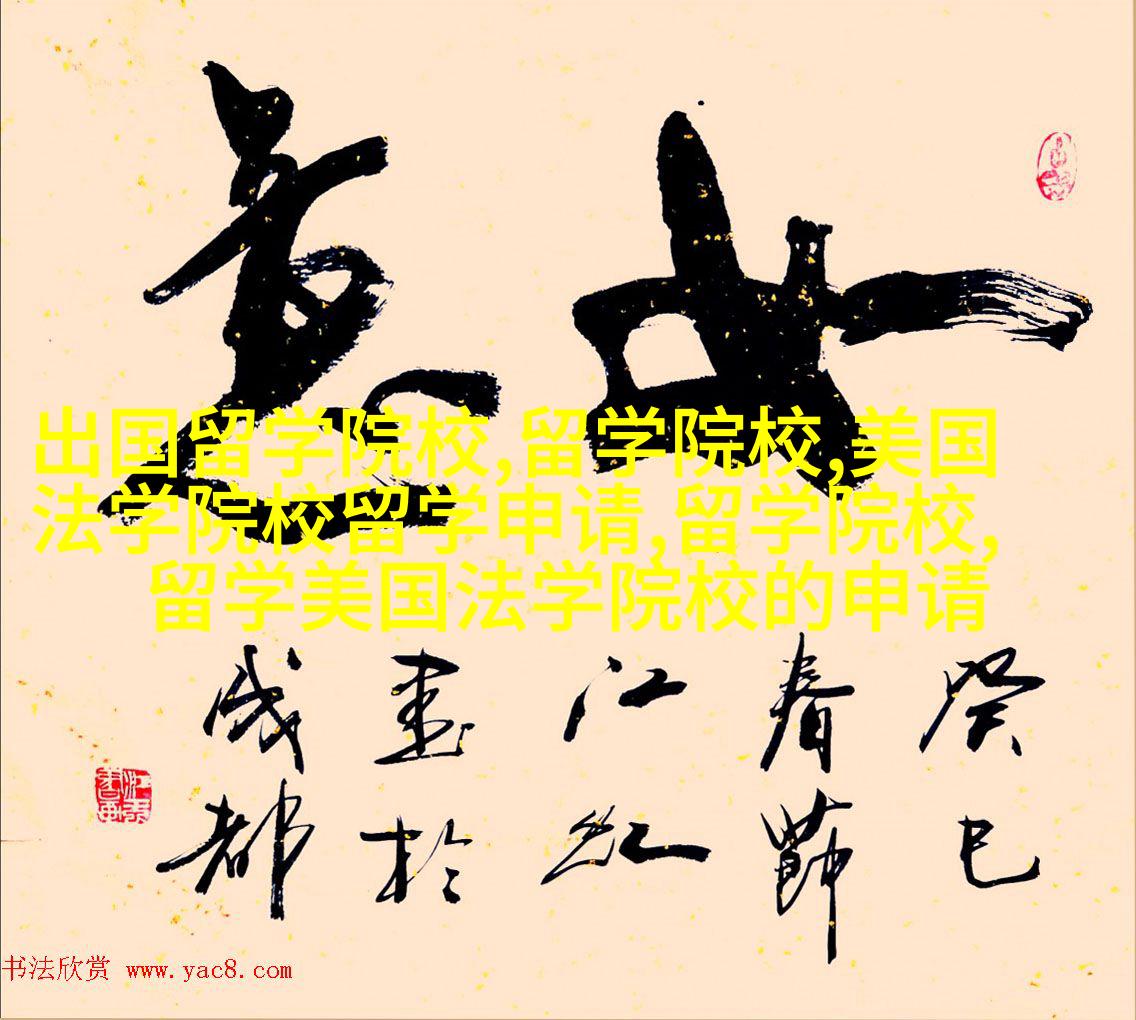 如意
出国留学院校,留学院校,美国
法学院校留学申请,留学院校,
留学美国法学院校的申请
癸巳
春節
江紅
書於
成都
书法欣赏 www.yac8.com